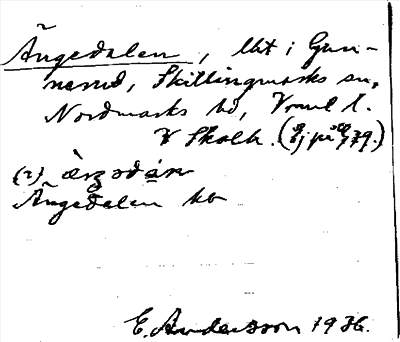 Ängedalen, lht i Gun-
nerud, Skillingmarks sn,
Nordmarks hd, Vrml l.
V Skalb. (Ej på GK 79.)
(2)
Ängedalen hb
E. Andersson 1936.